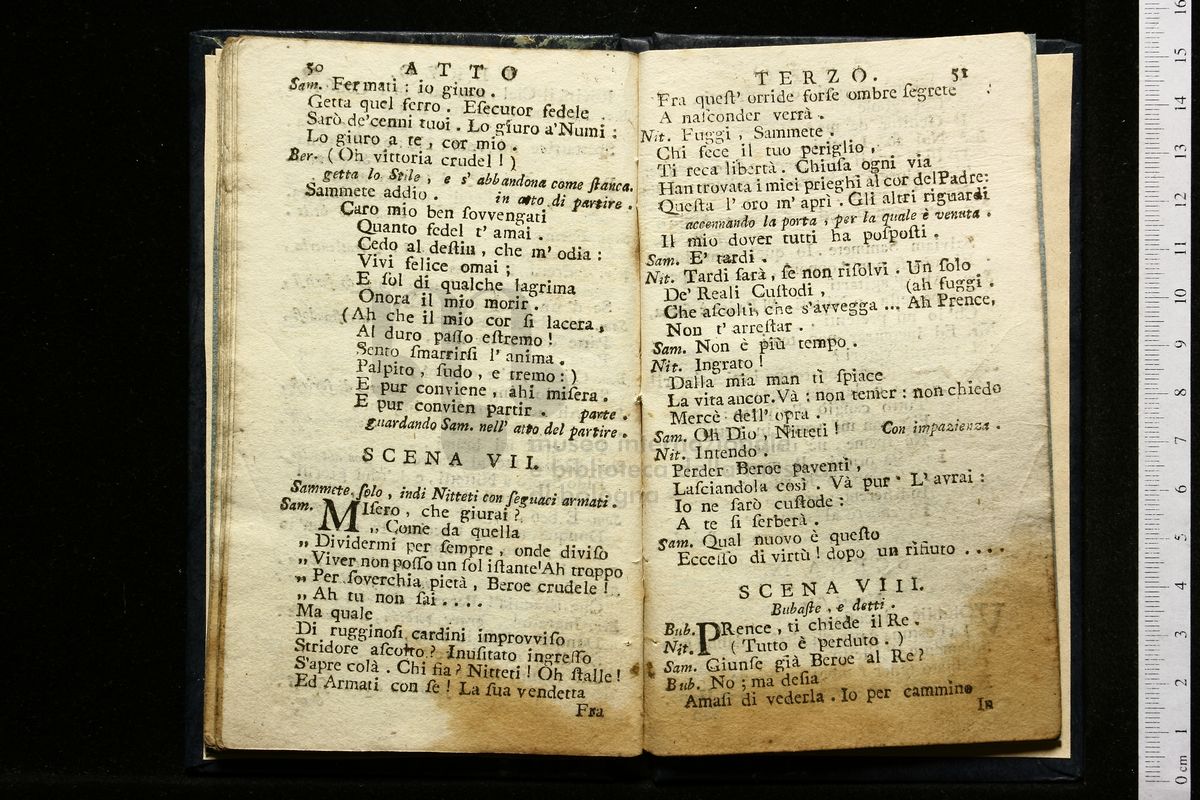 50 ATTO
Sam. Fermati : io giuro .
Getta quel ferro . Eſecutor fedele
Sarò de'cenni tuoi . Lo giuro a'Numi :
Lo giuro a te , cor mio .
Ber. ( Oh vittoria crudel ! )
getta lo Stile , e s' abbandona come ſtanca.
Sammete addio . in atto di partire .
Caro mio ben ſovvengati
Quanto fedel t' amai .
Cedo al deſtin , che m' odia :
Vivi felice omai ;
E ſol di qualche lagrima
Onora il mio morir .
( Ah che il mio cor ſi lacera ,
Al duro paſſo eſtremo !
Sento ſmarrirſi l' anima .
Palpito , ſudo , e tremo : )
E pur conviene , ahi miſera .
E pur convien partir . parte .
guardando Sam. nell' atto del partire .
SCENA VII.
Sammete ſolo , indi Nitteti con ſeguaci armati .
Sam. MIſero , che giurai ?
„ Come da quella
„ Dividermi per ſempre , onde diviſo
„ Viver non poſſo un ſol iſtante!Ah troppo
„ Per ſoverchia pietà , Beroe crudele !
„ Ah tu non ſai . . . .
Ma quale
Di rugginoſi cardini improvviſo
Stridore aſcolto ? Inuſitato ingreſſo
S'apre colà . Chi fia ? Nitteti ! Oh ſtalle !
Ed Armati con ſe ! La ſua vendetta
Fra
TERZO. 51
Fra queſt' orride forſe ombre ſegrete
A naſconder verrà .
Nit. Fuggi , Sammete .
Chi fece il tuo periglio ,
Ti reca libertà . Chiuſa ogni via
Han trovata i miei prieghi al cor del Padre:
Queſta l' oro m' aprì . Gli altri riguardi
accennando la porta , per la quale è venuta .
Il mio dover tutti ha poſpoſti .
Sam. E' tardi .
Nit. Tardi ſarà , ſe non riſolvi . Un ſolo
De' Reali Cuſtodi , (ah fuggi .
Che aſcolti, che s'avvegga ... Ah Prence,
Non t' arreſtar .
Sam. Non è più tempo .
Nit. Ingrato !
Dalla mia man ti ſpiace
La vita ancor. Và : non temer : non chiedo
Mercè dell' opra .
Sam. Oh Dio , Nitteti ! Con impazienza .
Nit. Intendo .
Perder Beroe paventi ,
Laſciandola così . Và pur . L' avrai :
Io ne ſarò cuſtode :
A te ſi ſerberà .
Sam. Qual nuovo è queſto
Ecceſſo di virtù ! dopo un rifiuto . . . .
SCENA VIII.
Bubaſte , e detti .
Bub. PRence , ti chiede il Re .
Nit. ( Tutto è perduto . )
Sam. Giunſe già Beroe al Re ?
Bub. No ; ma deſia
Amaſi di vederla . Io per cammino
In